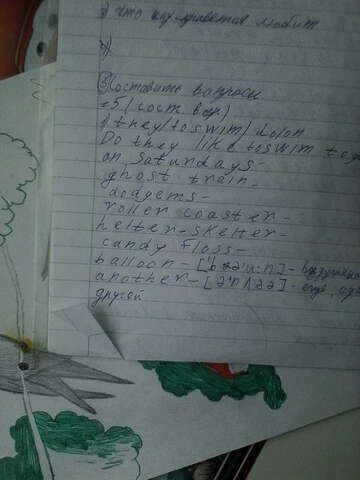 ) что
любит
3 Поставить вопросы
=5 (сост вер)
1 they/to swim/do/on
Do they like to swim
on Satundays-
ghost train-
dodgems-
roller coaster-
helter-skelter-
candy floss-
balloon-[bə'u:n]-
another-[ə'nʌðə]-еще,
другой